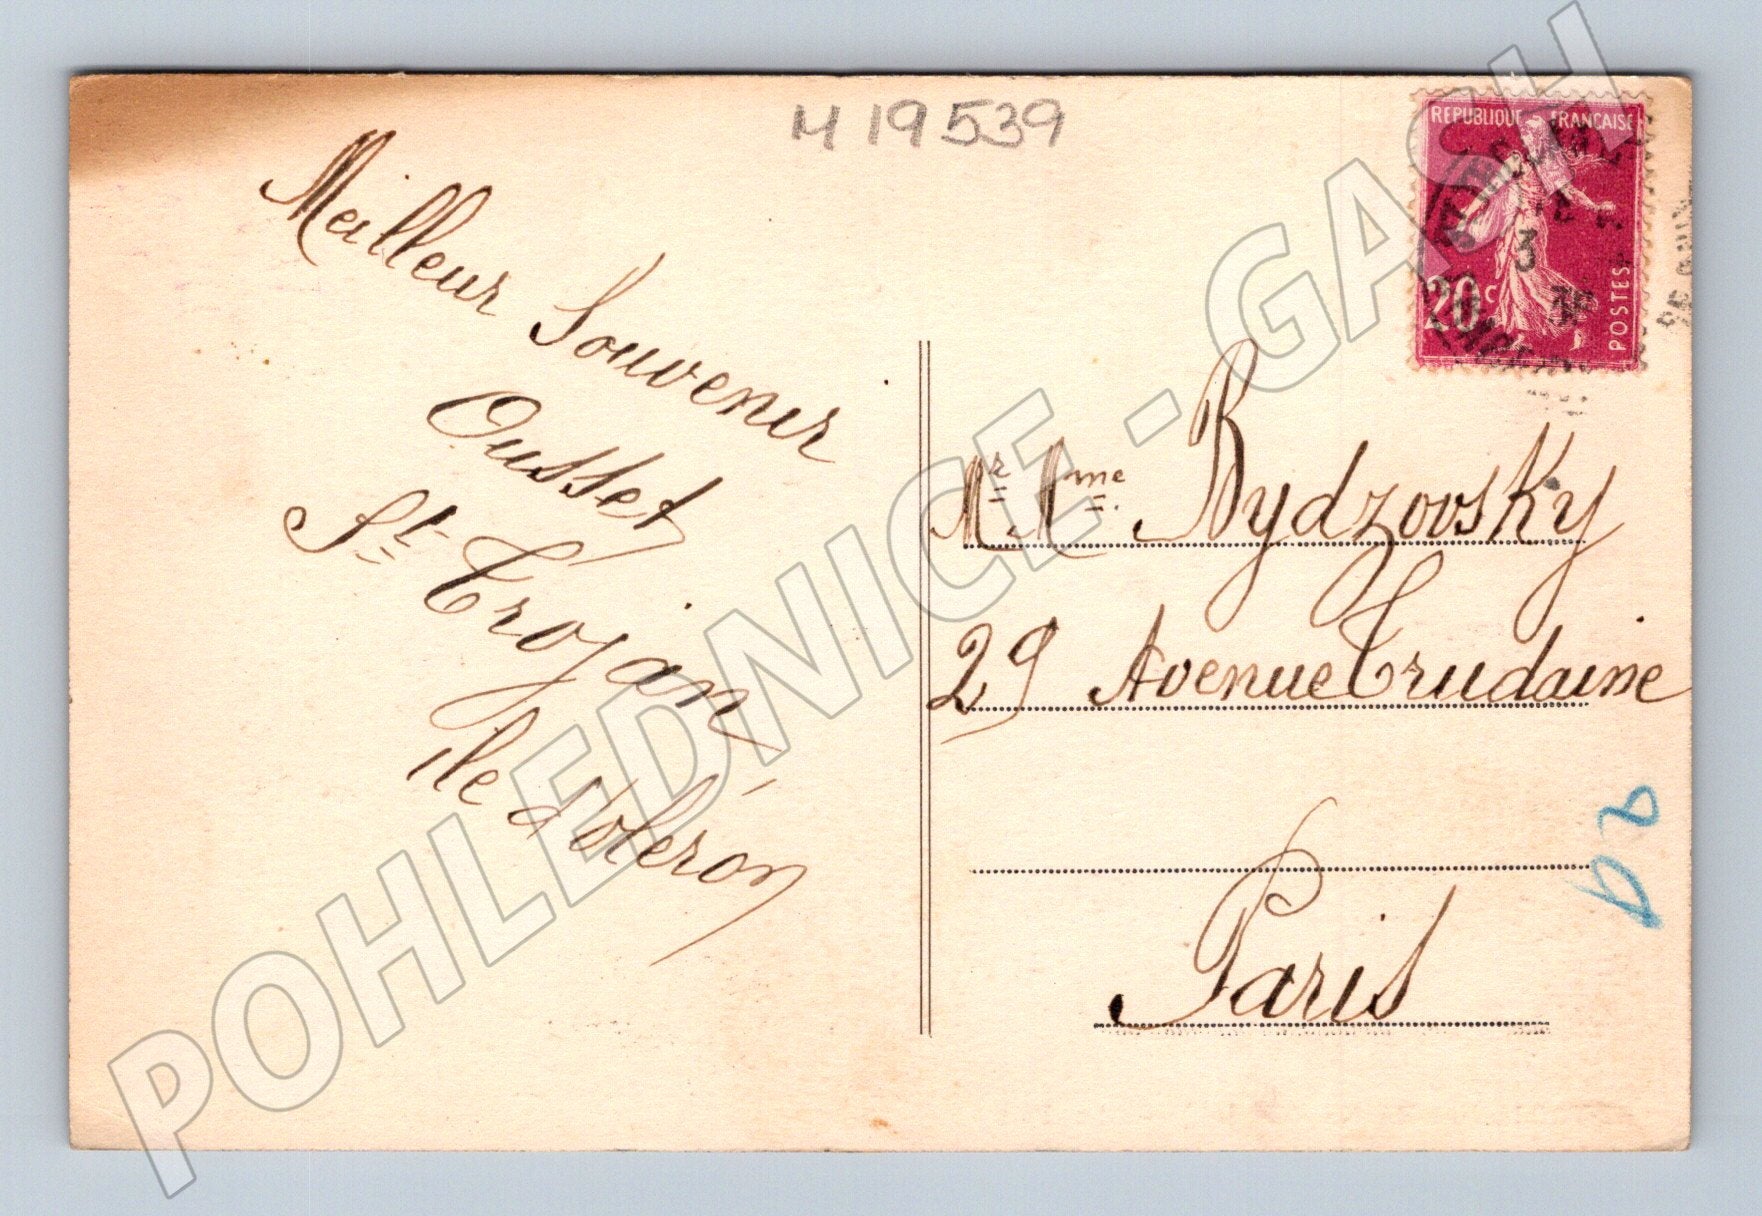 M 19539
Meilleur Souvenir
Ousset
St Trojan
île d'oléron
REPUBLIQUE FRANÇAISE
3
20c
POSTES
Mr Mme Rydzovsky
29 Avenue Trudaine
Paris
D2
POHLEDNICE - GASH